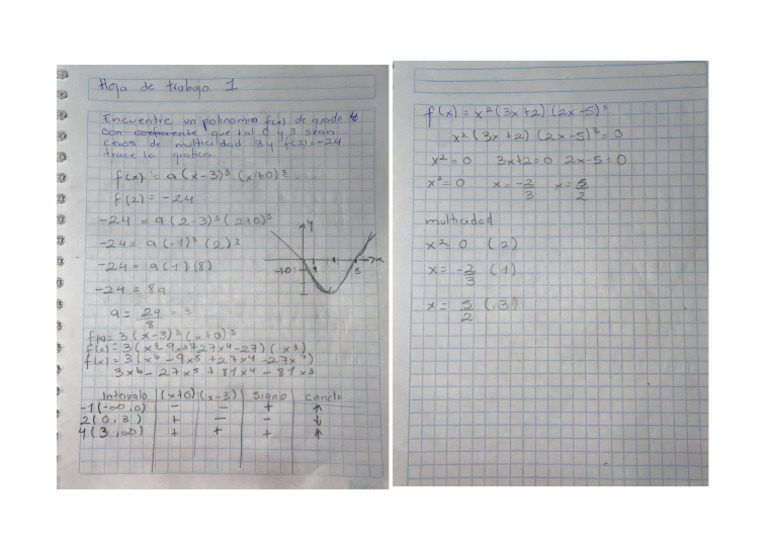 Hoja de trabajo 1
Encuentre un polinomio f(x) de grado 6
con coeficiente que tal 0 y 3 sean
ceros de multicidad 3 y f(2)=-24
trace la grafica.
f(x) = a(x-3)³ (x+0)³
f(2) = -24
-24 = a(2-3)³(2+0)³
-24 = a(-1)³(2)³
-24 = a(-1)(8)
-24 = 8a
a = 24/8 = 3
f(x)= 3(x-3)³(x+0)³
f(x) = 3(x³-9x²+27x⁴-27)(x³)
f(x) = 3(x⁶-9x⁵+27x⁴-27x³)
3x⁶-27x⁵+81x⁴-81x³
y
x
-10
1
3
Intervalo (x+0) (x-3) Signo Conclu
-1(-∞,0) - - + ↑
2(0,3) + - - ↓
4(3,∞) + + + ↑
f(x) = x²(3x+2)(2x-5)³
x²(3x+2)(2x-5)³=0
x²=0 3x+2=0 2x-5=0
x²=0 x=-2/3 x=5/2
multicidad
x²=0 (2)
x= -2/3 (1)
x= 5/2 (3)